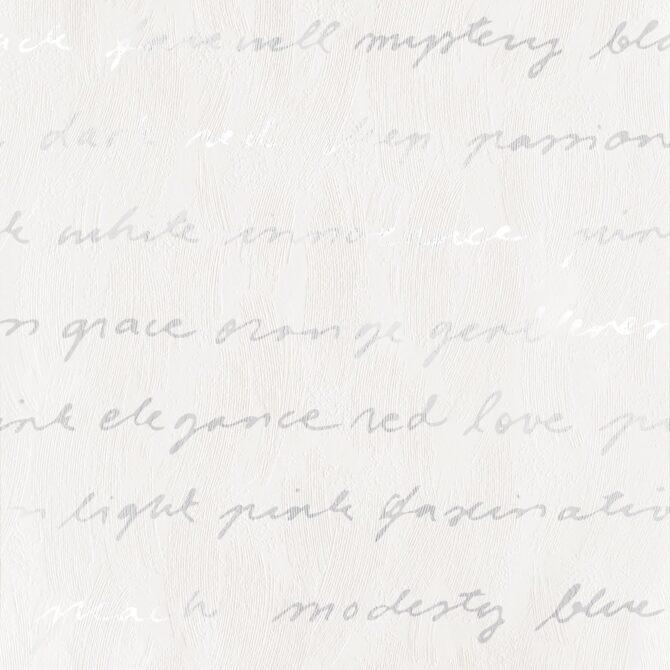 ck farewell mystery bla
dark red deep passion
k white innocence pin
n grace orange gentlenes
ink elegance red love p
n light pink fascinatio
peach modesty blue